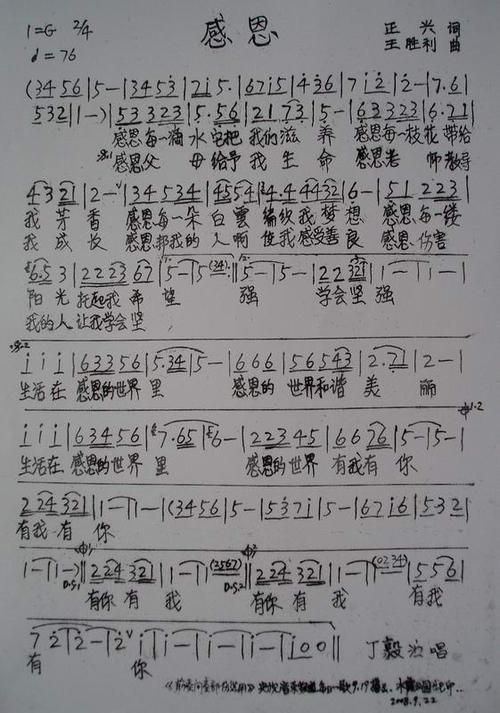 感恩
1=G 2/4
正兴 词
♩=76
王胜利 曲
(3456|5-|3453|2i5·|67i5|436|7i2|2-|7·6|
532|1-)|53323|5·56|21.73|5-|63323|6·21|
感恩每一滴水它把我们滋养 感恩每一枝花带给
感恩父母给予我生命 感恩老师教导
4321|2-|34534|4554|444432|6-|51223|
我芳香 感恩每一朵白雲编织我梦想 感恩每一缕
我成长 感恩帮我的人啊使我感受善良 感恩伤害
653|22367|5-|5-(34)|5-|5-|22324|1-|1-|
阳光托起我希望 强 学会坚强
我的人让我学会坚
iii|63356|5·34|5-|666|56543|2·21|2-|
生活在感恩的世界里 感恩的世界和谐美丽
iii|63456|7·65|6-|22345|6676|5-|5-|
生活在感恩的世界里 感恩的世界有我有你
224321|1-|1-|(3456|5-|537i|5-|67i6|532|
有我有你
1-|1-)|224321|1-|1-(2567)|224321|1-|1-(0234)|556|
D.S.1 D.S.2
有你有我 有你有我 有我
72|2-|2|i-|i-|i-|i-|i00||
有你
丁毅 演唱
2008.9.22